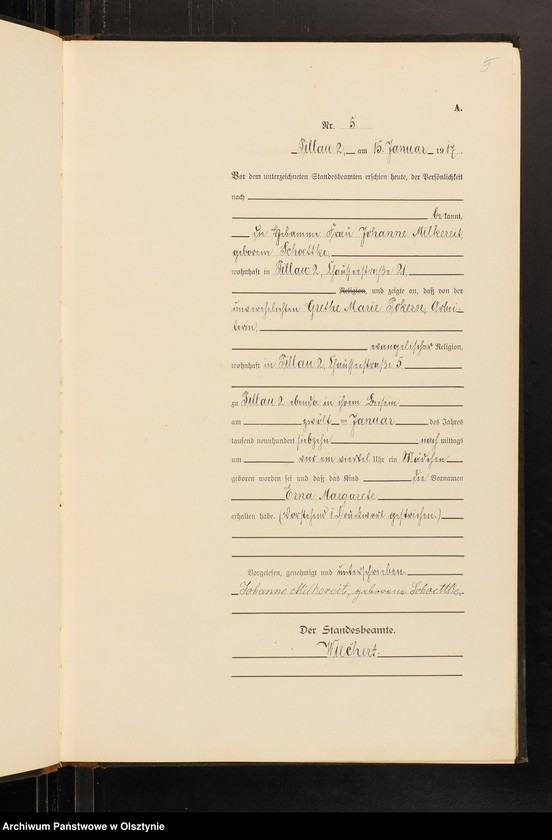 5
A.
Nr. 5.
Pillau 2, am 15. Januar 1917.
Vor dem unterzeichneten Standesbeamten erschien heute, der Persönlichkeit
nach
bekannt,
die Hebamme Frau Johanne Milkereit
geborene Schoettke,
wohnhaft in Pillau 2, Chausseestraße 21,
Religion, und zeigte an, daß von der
unverehelichten Grethe Marie Pokern, Arbei-
terin,
evangelischer Religion,
wohnhaft in Pillau 2, Chausseestraße 5
zu Pillau 2 ebenda in ihrem Beisein
am zwölften Januar des Jahres
tausend neunhundert siebzehn nachmittags
um ein viertel Uhr ein Mädchen
geboren worden sei und daß das Kind die Vornamen
Erna Margarete
erhalten habe. (Vorstehend 1 Druckwort gestrichen.)
Vorgelesen, genehmigt und unterschrieben
Johanne Milkereit, geborene Schoettke.
Der Standesbeamte.
Wiechert.
Archiwum Państwowe w Olsztynie